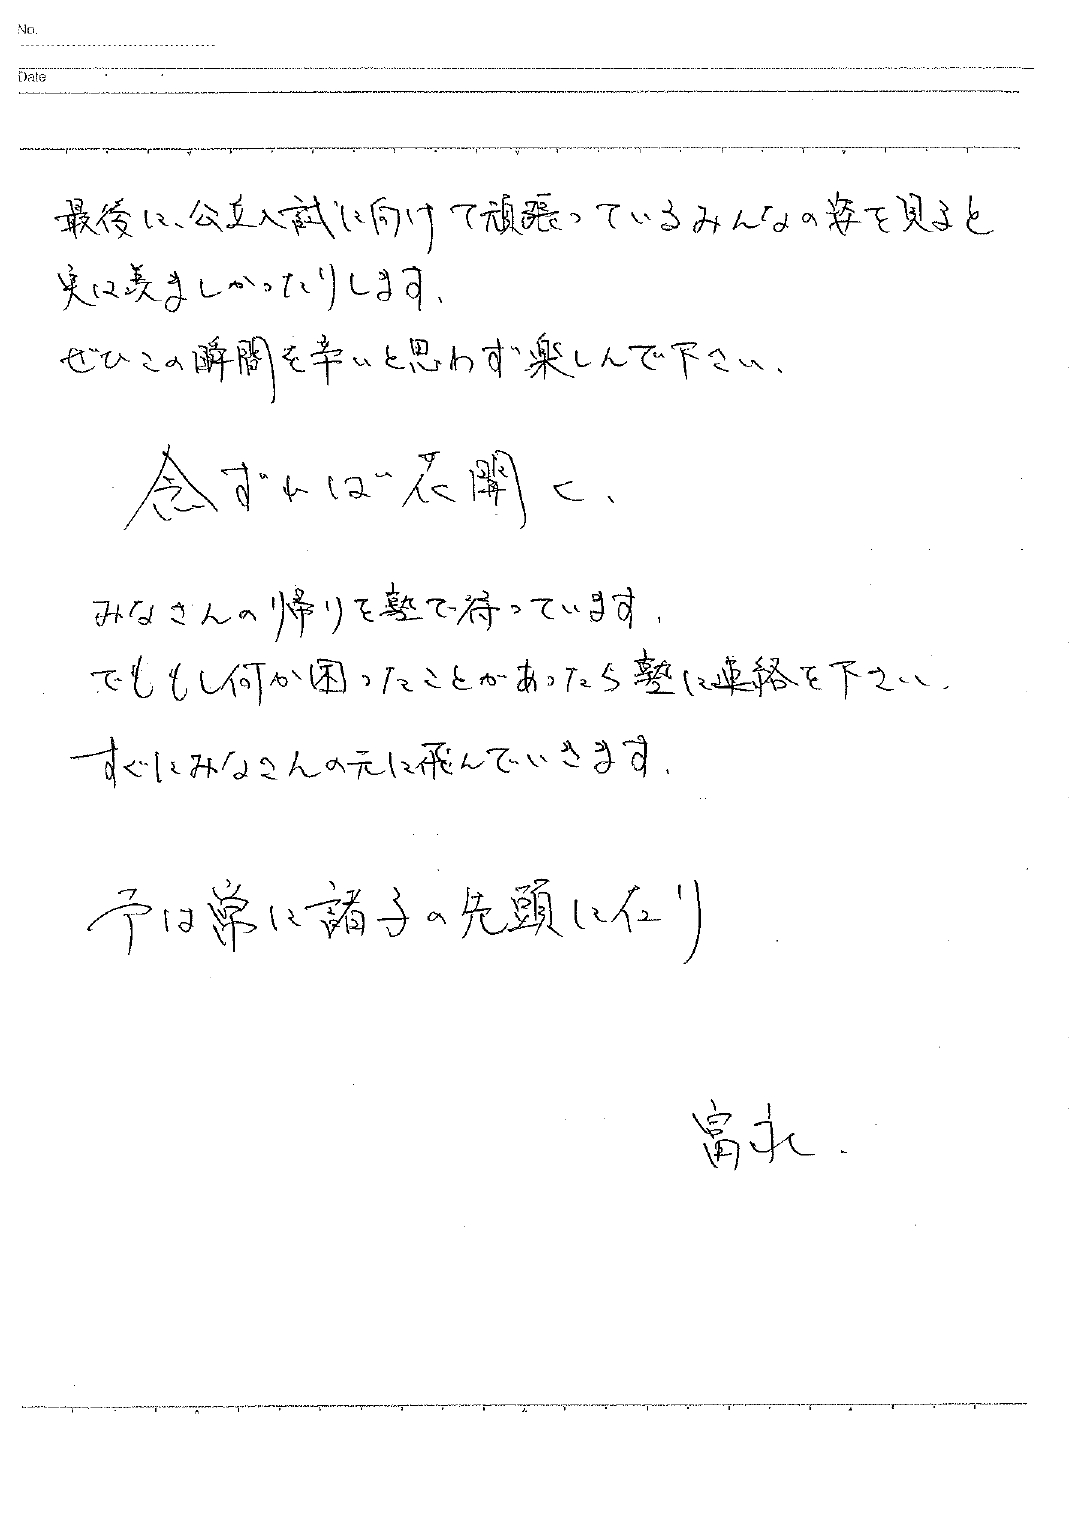 No.
Date
最後に、公立入試に向けて頑張っているみんなの姿を見ると
実は羨ましかったりします.
ぜひこの瞬間を辛いと思わず楽しんで下さい.
念ずれば花開く.
みなさんの帰りを塾で待っています.
でももし何か困ったことがあったら塾に連絡を下さい.
すぐにみなさんの元に飛んでいきます.
予は常に諸子の先頭に在り
富永.